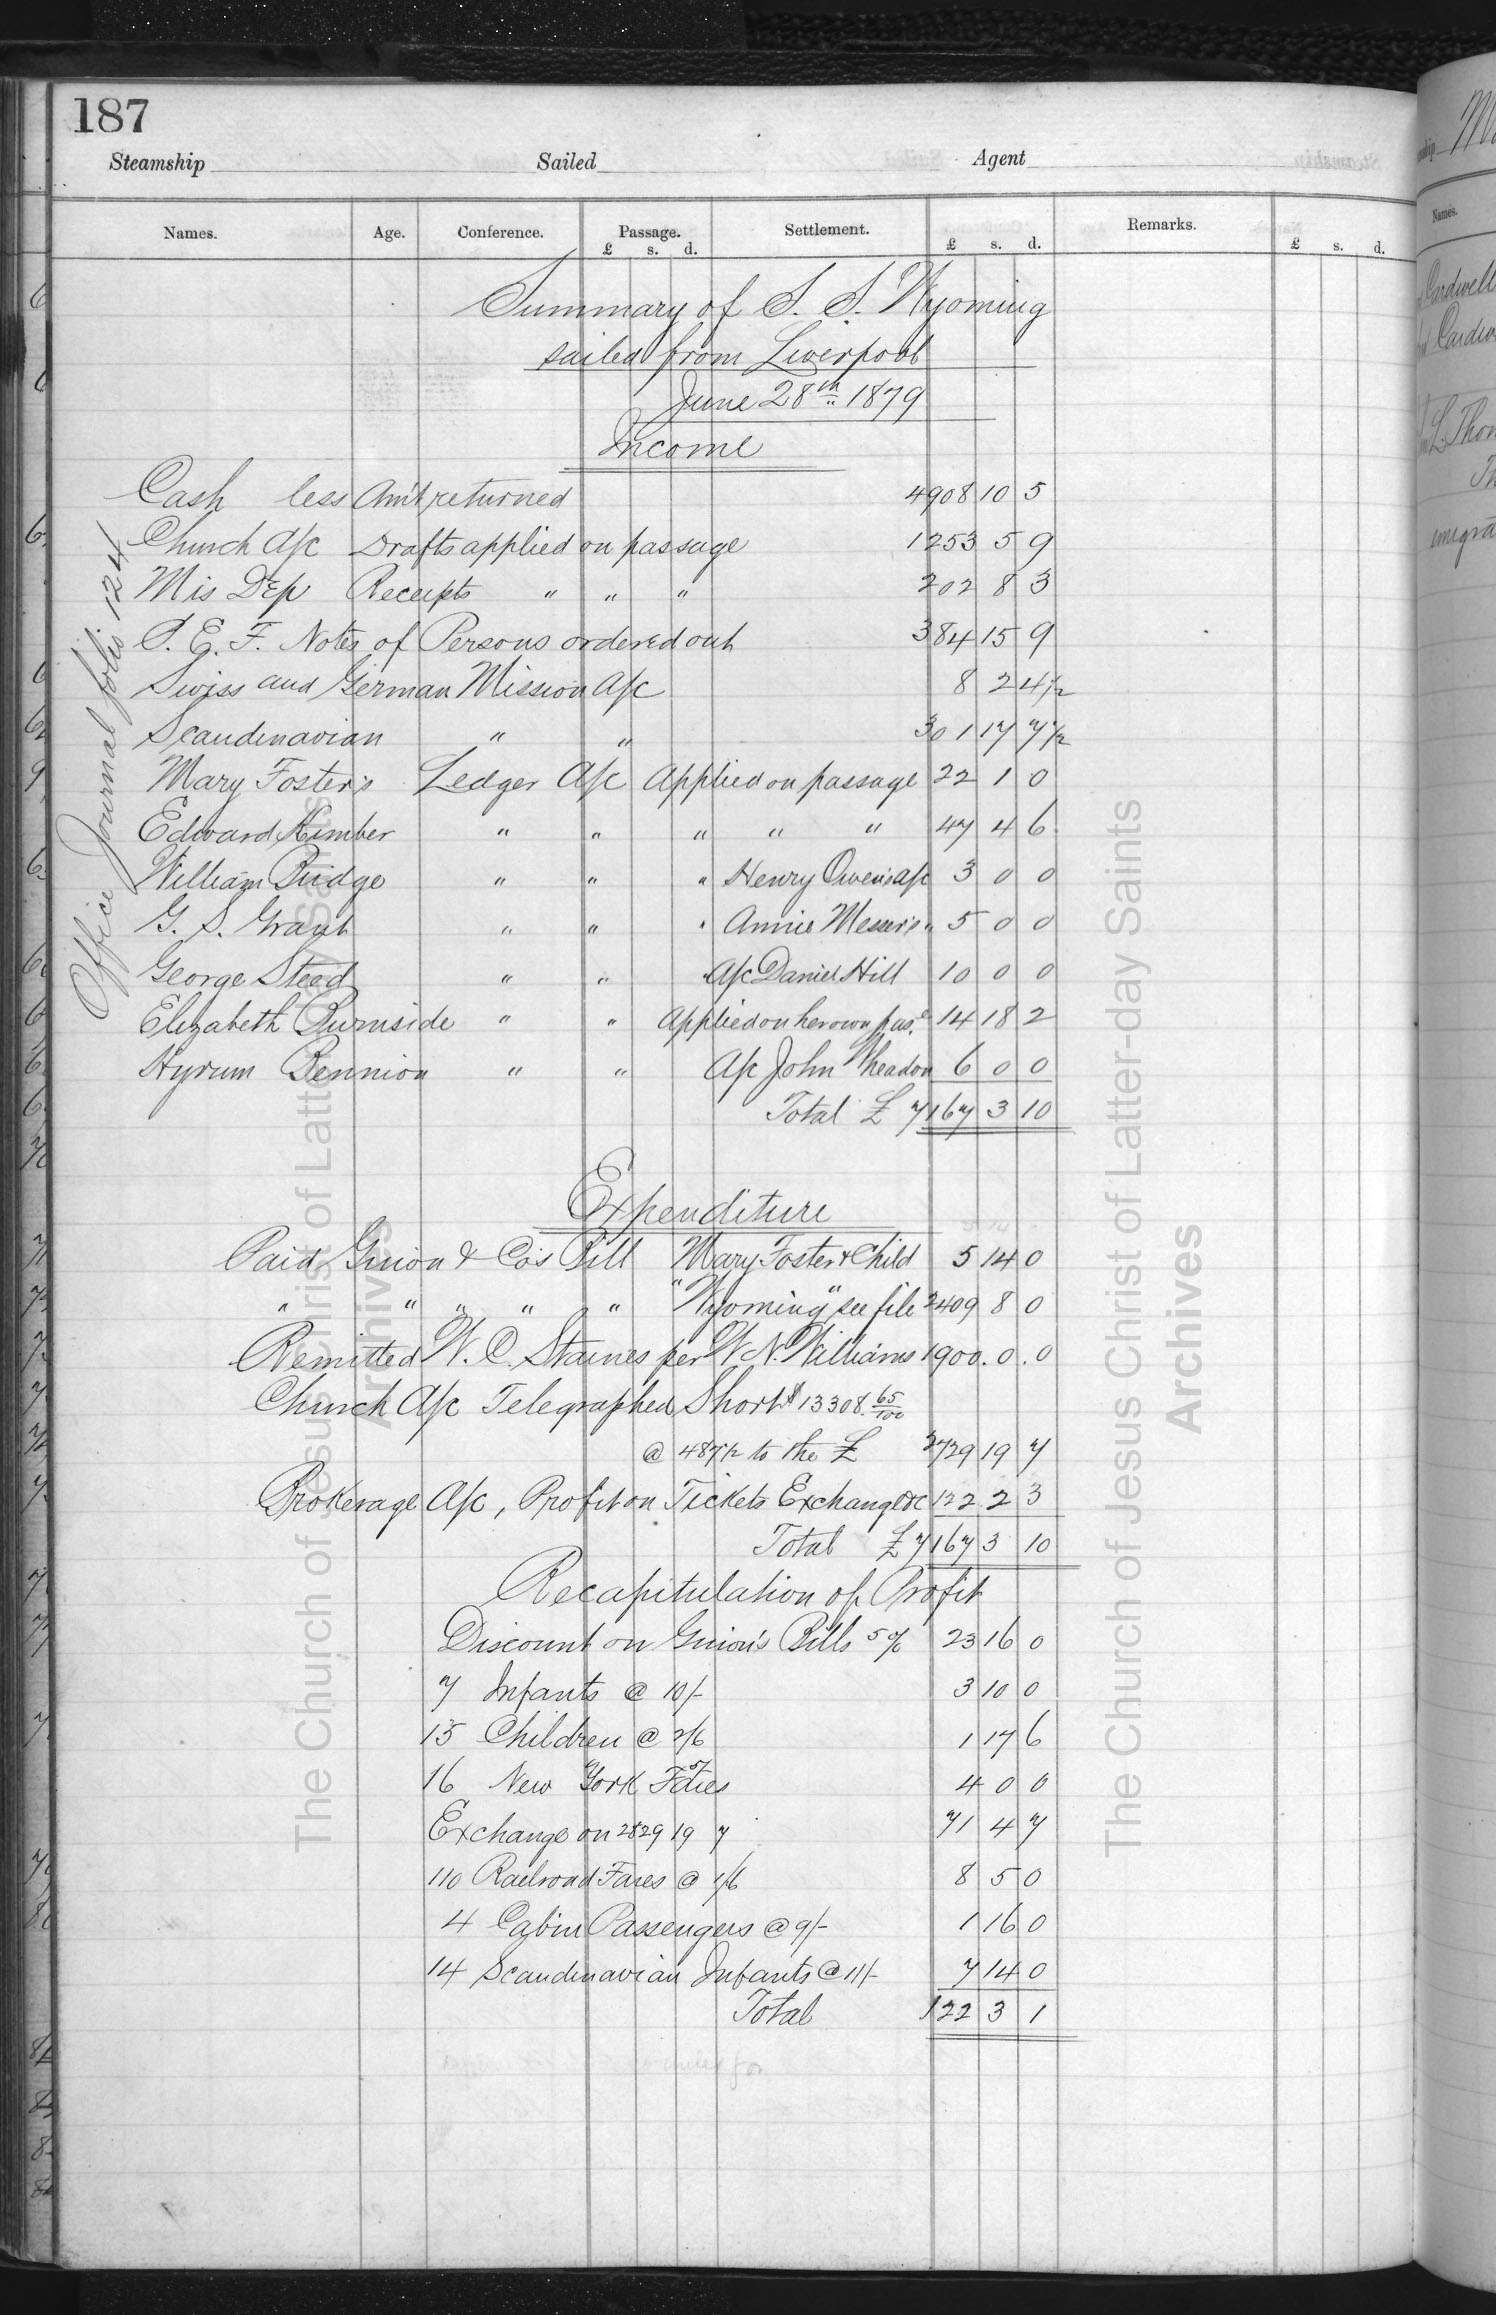 187
Steamship Sailed Agent
Names. Age. Conference. Passage. Settlement. Remarks.
£ s. d. £ s. d. £ s. d.
Summary of S. S. Wyoming
sailed from Liverpool
June 28th 1879
Income
Cash less Am't returned 4908 10 5
Church A/c Drafts applied on passage 1253 5 9
Mis Dep Receipts " " " 202 8 3
P. E. F. Notes of Persons ordered out 384 15 9
Swiss and German Mission A/c 8 2 4 1/2
Scandinavian " " 301 17 7 1/2
Mary Foster's Ledger A/c Applied on passage 22 1 0
Edward Kimber " " " " " 47 4 6
William Budge " " " Henry Owens a/c 3 0 0
G. S. Grant " " " Annie Messer's " 5 0 0
George Steed " " " A/c Daniel Hill 10 0 0
Elizabeth Burnside " " Applied on her own pas.e 14 18 2
Hyrum Bennion " " A/c John Wheadon 6 0 0
Total £ 7167 3 10
Office Journal folio 124
Expenditure
Paid Guion & Co's Bill Mary Foster & Child 5 14 0
" " " " " "Wyoming" see file 2409 8 0
Remitted W. C. Staines per W. N. Williams 1900. 0. 0
Church A/c Telegraphed Short $13308 65/100
@ 487 1/2 to the £ 2729 19 7
Brokerage A/c, Profit on Tickets Exchange &c 122 2 3
Total £7167 3 10
Recapitulation of Profit
Discount on Guion's Bills 5% 23 16 0
7 Infants @ 10/- 3 10 0
15 Children @ 2/6 1 17 6
16 New York Fares 5/ 4 0 0
Exchange on 2829 19 7 71 4 7
110 Railroad Fares @ 1/6 8 5 0
4 Cabin Passengers @ 9/- 1 16 0
14 Scandinavian Infants @ 11/- 7 14 0
Total 122 3 1
The Church of Jesus Christ of Latter-day Saints
Archives
The Church of Jesus Christ of Latter-day Saints
Archives
Names.
Cardwell